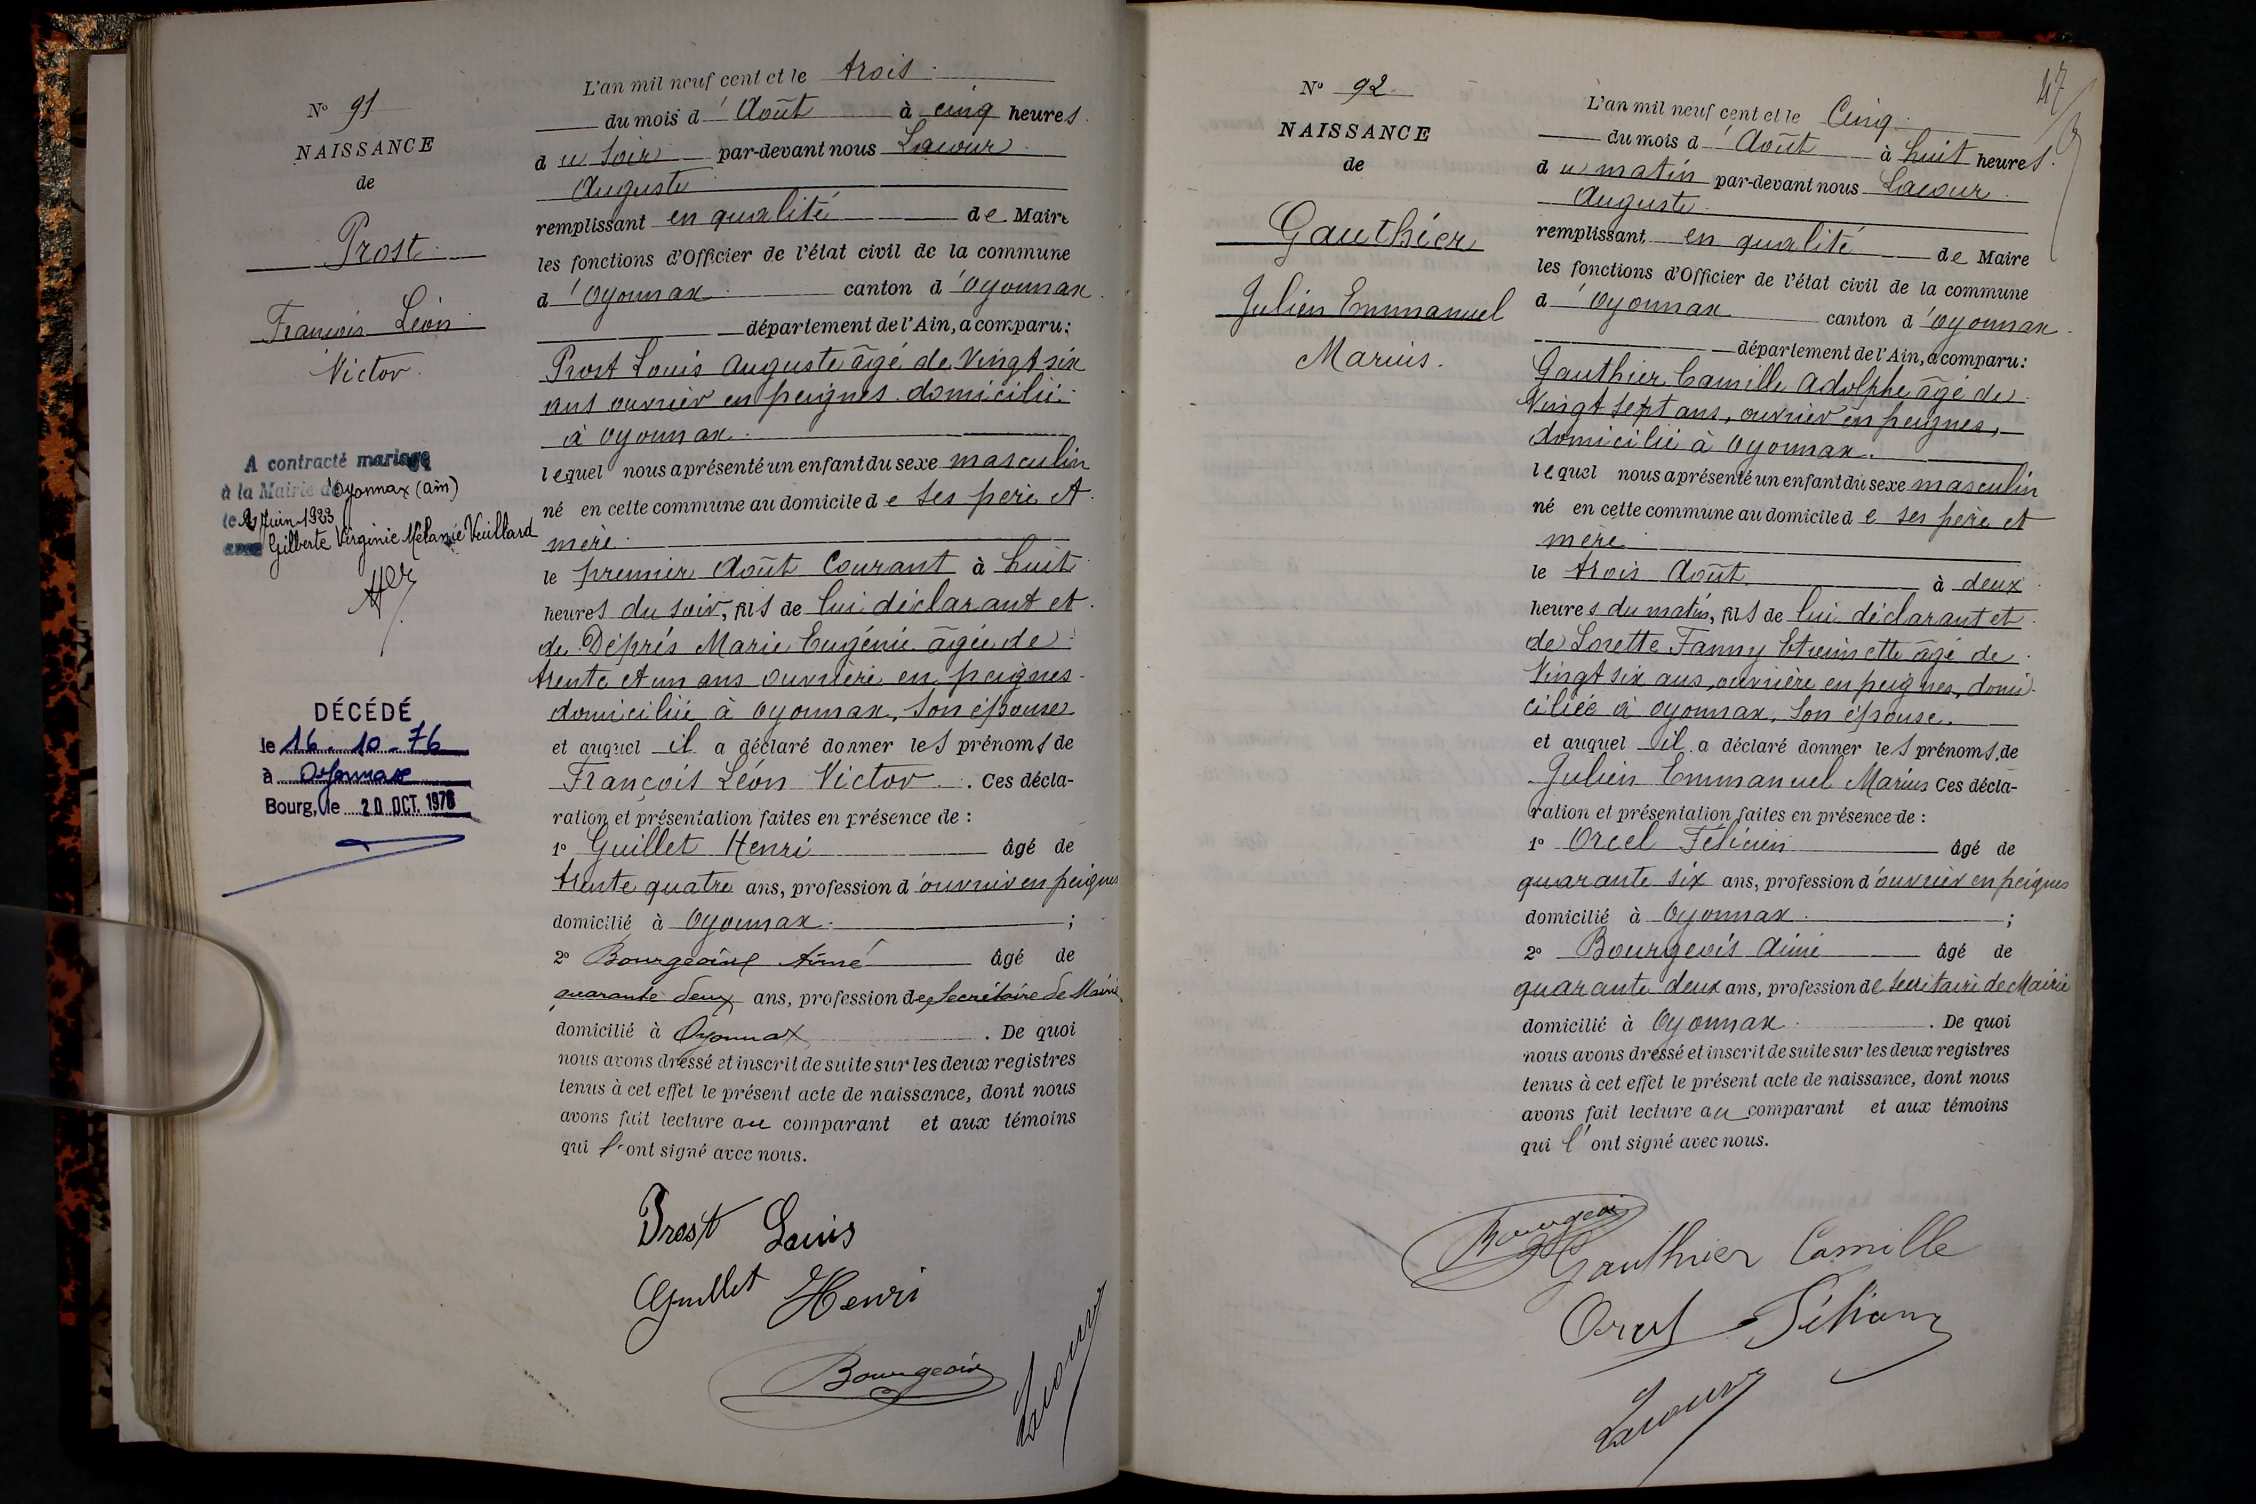 N° 91
NAISSANCE
de
Prost
François Léon
Victor
A contracté mariage
à la Mairie d'Oyonnax (Ain)
le 2 Juin 1923
avec Gilberte Virginie Mélanie Vuillard
DÉCÉDÉ
le 16 - 10 - 76
à Oyonnax
Bourg, le 20 OCT. 1976
L'an mil neuf cent et le trois
du mois d'Août à cinq heures
du soir par-devant nous Lacour
Auguste
remplissant en qualité de Maire
les fonctions d'Officier de l'état civil de la commune
d'Oyonnax canton d'Oyonnax
département de l'Ain, a comparu:
Prost Louis Auguste âgé de Vingt six
ans ouvrier en peignes domicilié
à Oyonnax
lequel nous a présenté un enfant du sexe masculin
né en cette commune au domicile de ses père et
mère
le premier Août courant à huit
heures du soir, fils de lui déclarant et
de Déprés Marie Eugénie âgée de
trente et un ans ouvrière en peignes
domiciliée à Oyonnax, son épouse
et auquel il a déclaré donner les prénoms de
François Léon Victor. Ces décla-
ration et présentation faites en présence de :
1° Guillet Henri âgé de
trente quatre ans, profession d'ouvrier en peignes
domicilié à Oyonnax ;
2° Bourgeois Aimé âgé de
quarante deux ans, profession de Secrétaire de Mairie
domicilié à Oyonnax. De quoi
nous avons dressé et inscrit de suite sur les deux registres
tenus à cet effet le présent acte de naissance, dont nous
avons fait lecture au comparant et aux témoins
qui l'ont signé avec nous.
Prost Louis
Guillet Henri
Bourgeois
Lacour
47
N° 92
NAISSANCE
de
Gauthier
Julien Emmanuel
Marius.
L'an mil neuf cent et le Cinq
du mois d'Août à huit heures
du matin par-devant nous Lacour
Auguste
remplissant en qualité de Maire
les fonctions d'Officier de l'état civil de la commune
d'Oyonnax canton d'Oyonnax
département de l'Ain, a comparu:
Gauthier Camille Adolphe âgé de
Vingt sept ans, ouvrier en peignes,
domicilié à Oyonnax.
lequel nous a présenté un enfant du sexe masculin
né en cette commune au domicile de ses père et
mère
le trois Août à deux
heures du matin, fils de lui déclarant et
de Lorette Fanny âgé de
Vingt six ans, ouvrière en peignes, domi-
ciliée à Oyonnax, son épouse.
et auquel il a déclaré donner les prénoms de
Julien Emmanuel Marius Ces décla-
ration et présentation faites en présence de :
1° Orcel Félicien âgé de
quarante six ans, profession d'ouvrier en peignes
domicilié à Oyonnax ;
2° Bourgeois Aimé âgé de
quarante deux ans, profession de secrétaire de Mairie
domicilié à Oyonnax. De quoi
nous avons dressé et inscrit de suite sur les deux registres
tenus à cet effet le présent acte de naissance, dont nous
avons fait lecture au comparant et aux témoins
qui l'ont signé avec nous.
Bourgeois
Gauthier Camille
Orcel Félicien
Lacour